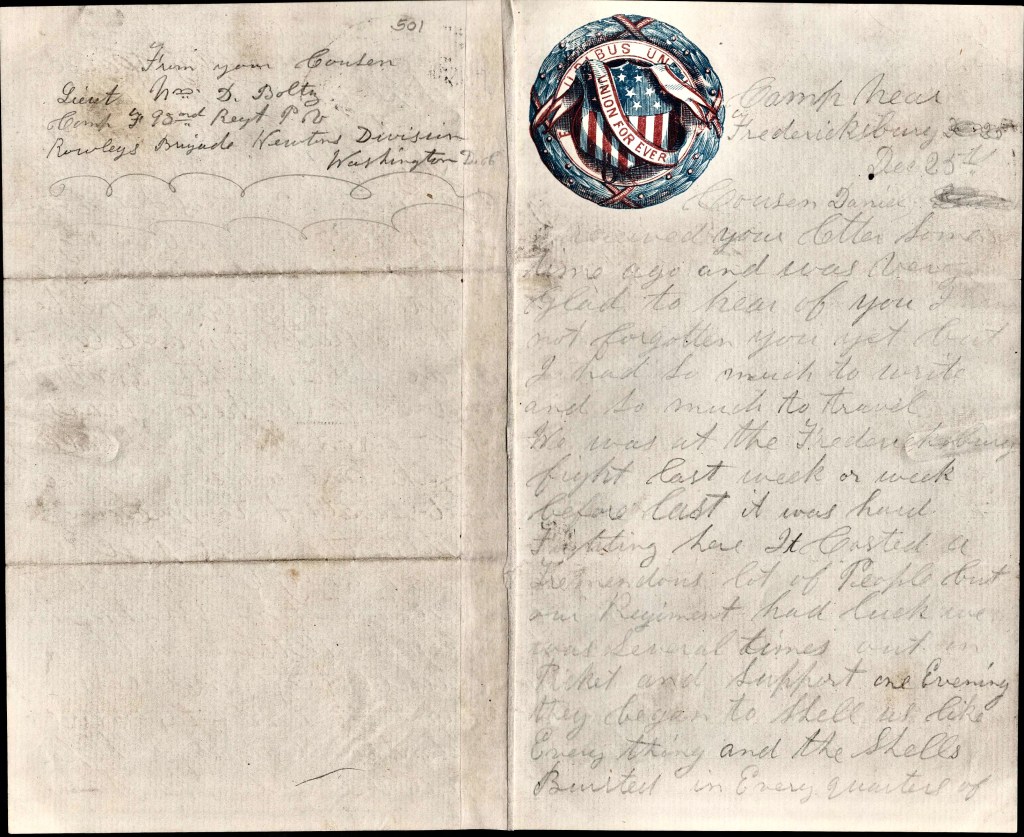 501
From your Cousen
Lieut Wm. D. Boltz
Comp F 93rd Regt P V
Rowleys Brigade Newtons Division
Washington
E PLURIBUS UNUM
UNION FOR EVER
Camp near
Fredericksburg
Dec 25th
Cousen Daniel
I received your letter some
time ago and was very
Glad to hear of you I
not forgotten you yet but
I had so much to write
and so much to travel
We was at the Fredericksburg
fight last week or week
before last it was hard
Fighting here It Costed a
Tremendous lot of People but
our Regiment had luck we
was several times out on
Picket and Support one Evening
they began to shell us like
Every thing and the Shells
Bursted in Every quarters of